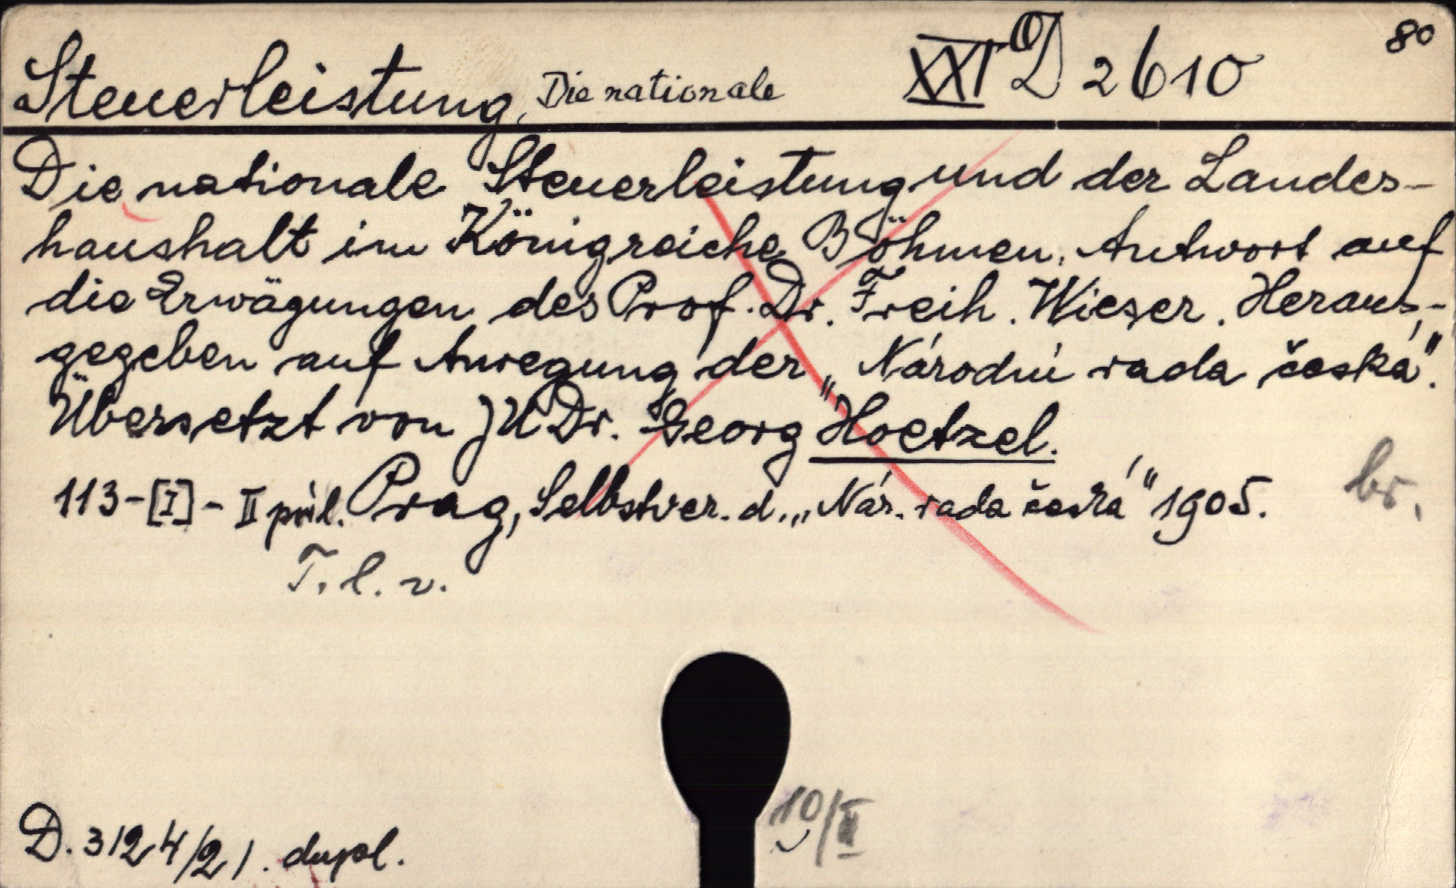 Steuerleistung, Die nationale XXI D 2610 8°
Die nationale Steuerleistung und der Landes-
haushalt im Königreiche Böhmen. Antwort auf
die Erwägungen des Prof. Dr. Freih. Wieser. Heraus-
gegeben auf Anregung der „Národní rada česká".
Übersetzt von JUDr. Georg Hoetzel.
113-[I]-II příl. Prag, Selbstver. d. „Nár. rada česká" 1905. br.
T. l. v.
10/II
D. 3124/21. dupl.